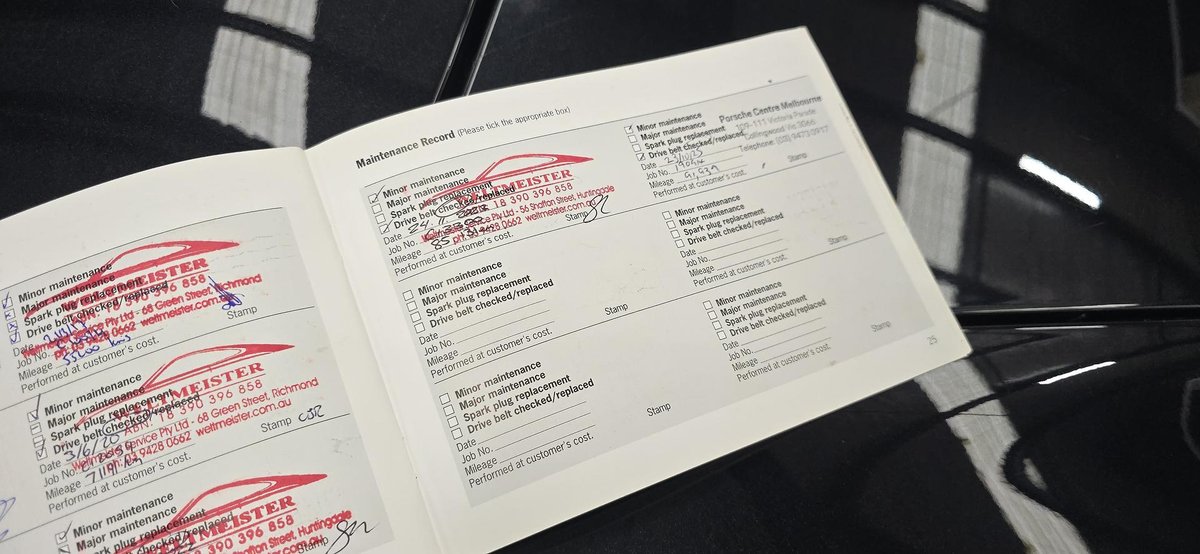 Minor maintenance
Major maintenance
Spark plug replacement
Drive belt checked/replaced
Date
Job No.
Mileage 55600 kms
Performed at customer's cost.
MEISTER
390 396 858
Service Pty Ltd - 68 Green Street, Richmond
0662 weltmeister.com.au
Stamp
Minor maintenance
Major maintenance
Spark plug replacement
Drive belt checked/replaced
Date 3/6/20
Job No.
Mileage
Performed at customer's cost.
MEISTER
ABN: 18 390 396 858
Service Pty Ltd - 68 Green Street, Richmond
Ph: 03 9428 0662 weltmeister.com.au
Stamp
Minor maintenance
Major maintenance
Spark plug replacement
Drive belt checked/replaced
MEISTER
18 390 396 858
Shafton Street, Huntingdale
Stamp
Maintenance Record (Please tick the appropriate box)
Minor maintenance
Major maintenance
Spark plug replacement
Drive belt checked/replaced
Date 24
Job No.
Mileage 85
Performed at customer's cost.
MEISTER
18 390 396 858
Service Pty Ltd - 56 Shafton Street, Huntingdale
Ph: 9428 0662 weltmeister.com.au
Stamp
Minor maintenance
Major maintenance
Spark plug replacement
Drive belt checked/replaced
Date
Job No.
Mileage
Performed at customer's cost.
Stamp
Minor maintenance
Major maintenance
Spark plug replacement
Drive belt checked/replaced
Date
Job No.
Mileage
Performed at customer's cost.
Stamp
Minor maintenance
Major maintenance
Spark plug replacement
Drive belt checked/replaced
Date 23/10/23
Job No.
Mileage 91,939
Performed at customer's cost.
Porsche Centre Melbourne
109-111 Victoria Parade
Collingwood Vic 3066
Telephone: (03) 9473 0917
Stamp
Minor maintenance
Major maintenance
Spark plug replacement
Drive belt checked/replaced
Date
Job No.
Mileage
Performed at customer's cost.
Stamp
Minor maintenance
Major maintenance
Spark plug replacement
Drive belt checked/replaced
Date
Job No.
Mileage
Performed at customer's cost.
Stamp
25